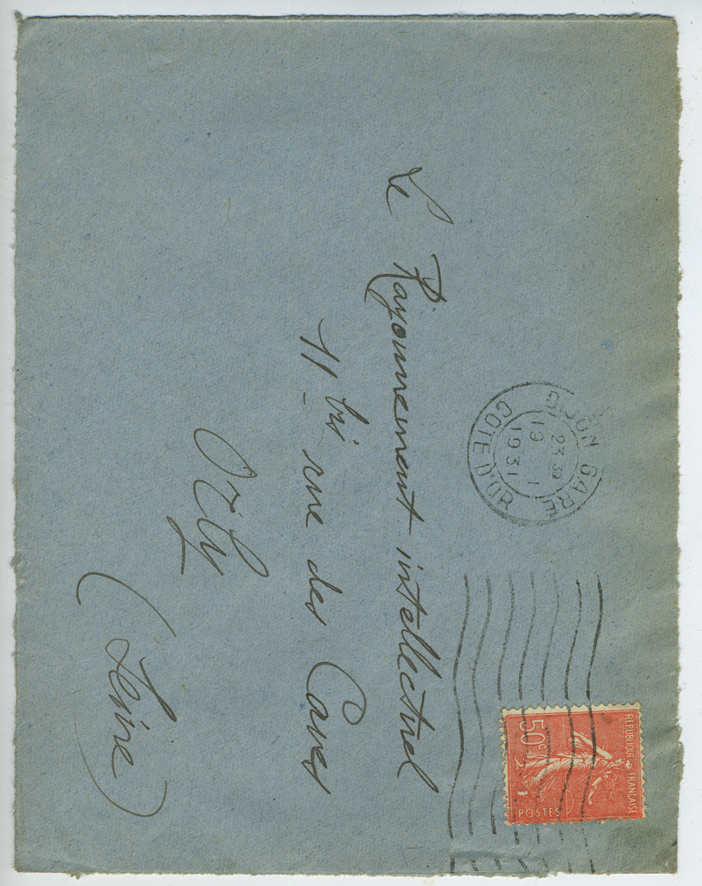 DIJON GARE
23 30
19 1
1931
COTE D'OR
REPUBLIQUE FRANÇAISE
50c
POSTES
Le Rayonnement intellectuel
11 bis rue des Caves
Orly
(Seine)